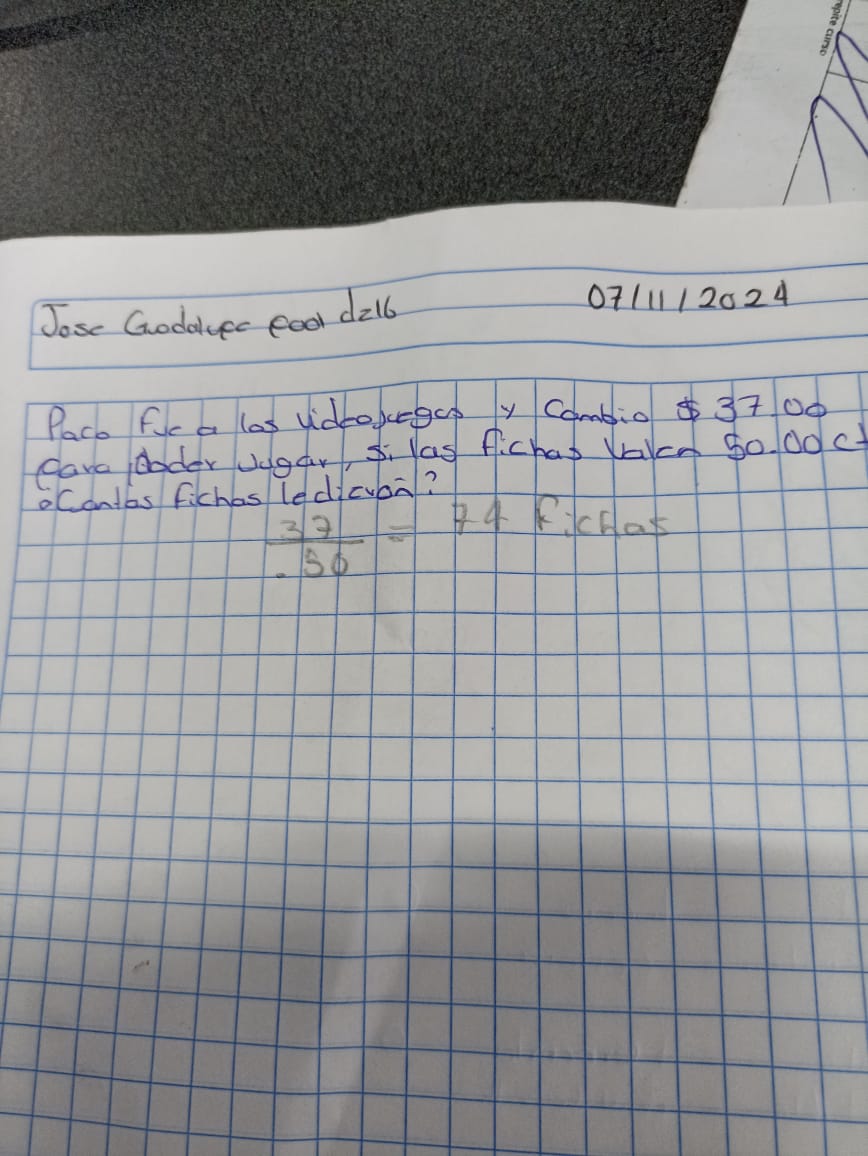 repite curso
Jose Guadalupe pool dzib
07/11/2024
Paco fue a los videojuegos y Cambio $ 37.00
para poder jugar, si las fichas Valen 50.00 ct
¿Cantas fichas le dieron?
37
.50
= 74 fichas